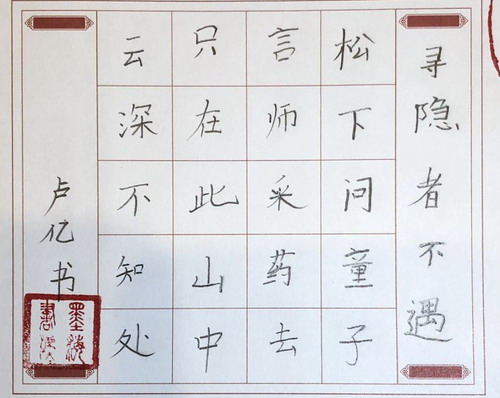 寻隐者不遇
松下问童子
言师采药去
只在此山中
云深不知处
卢亿书